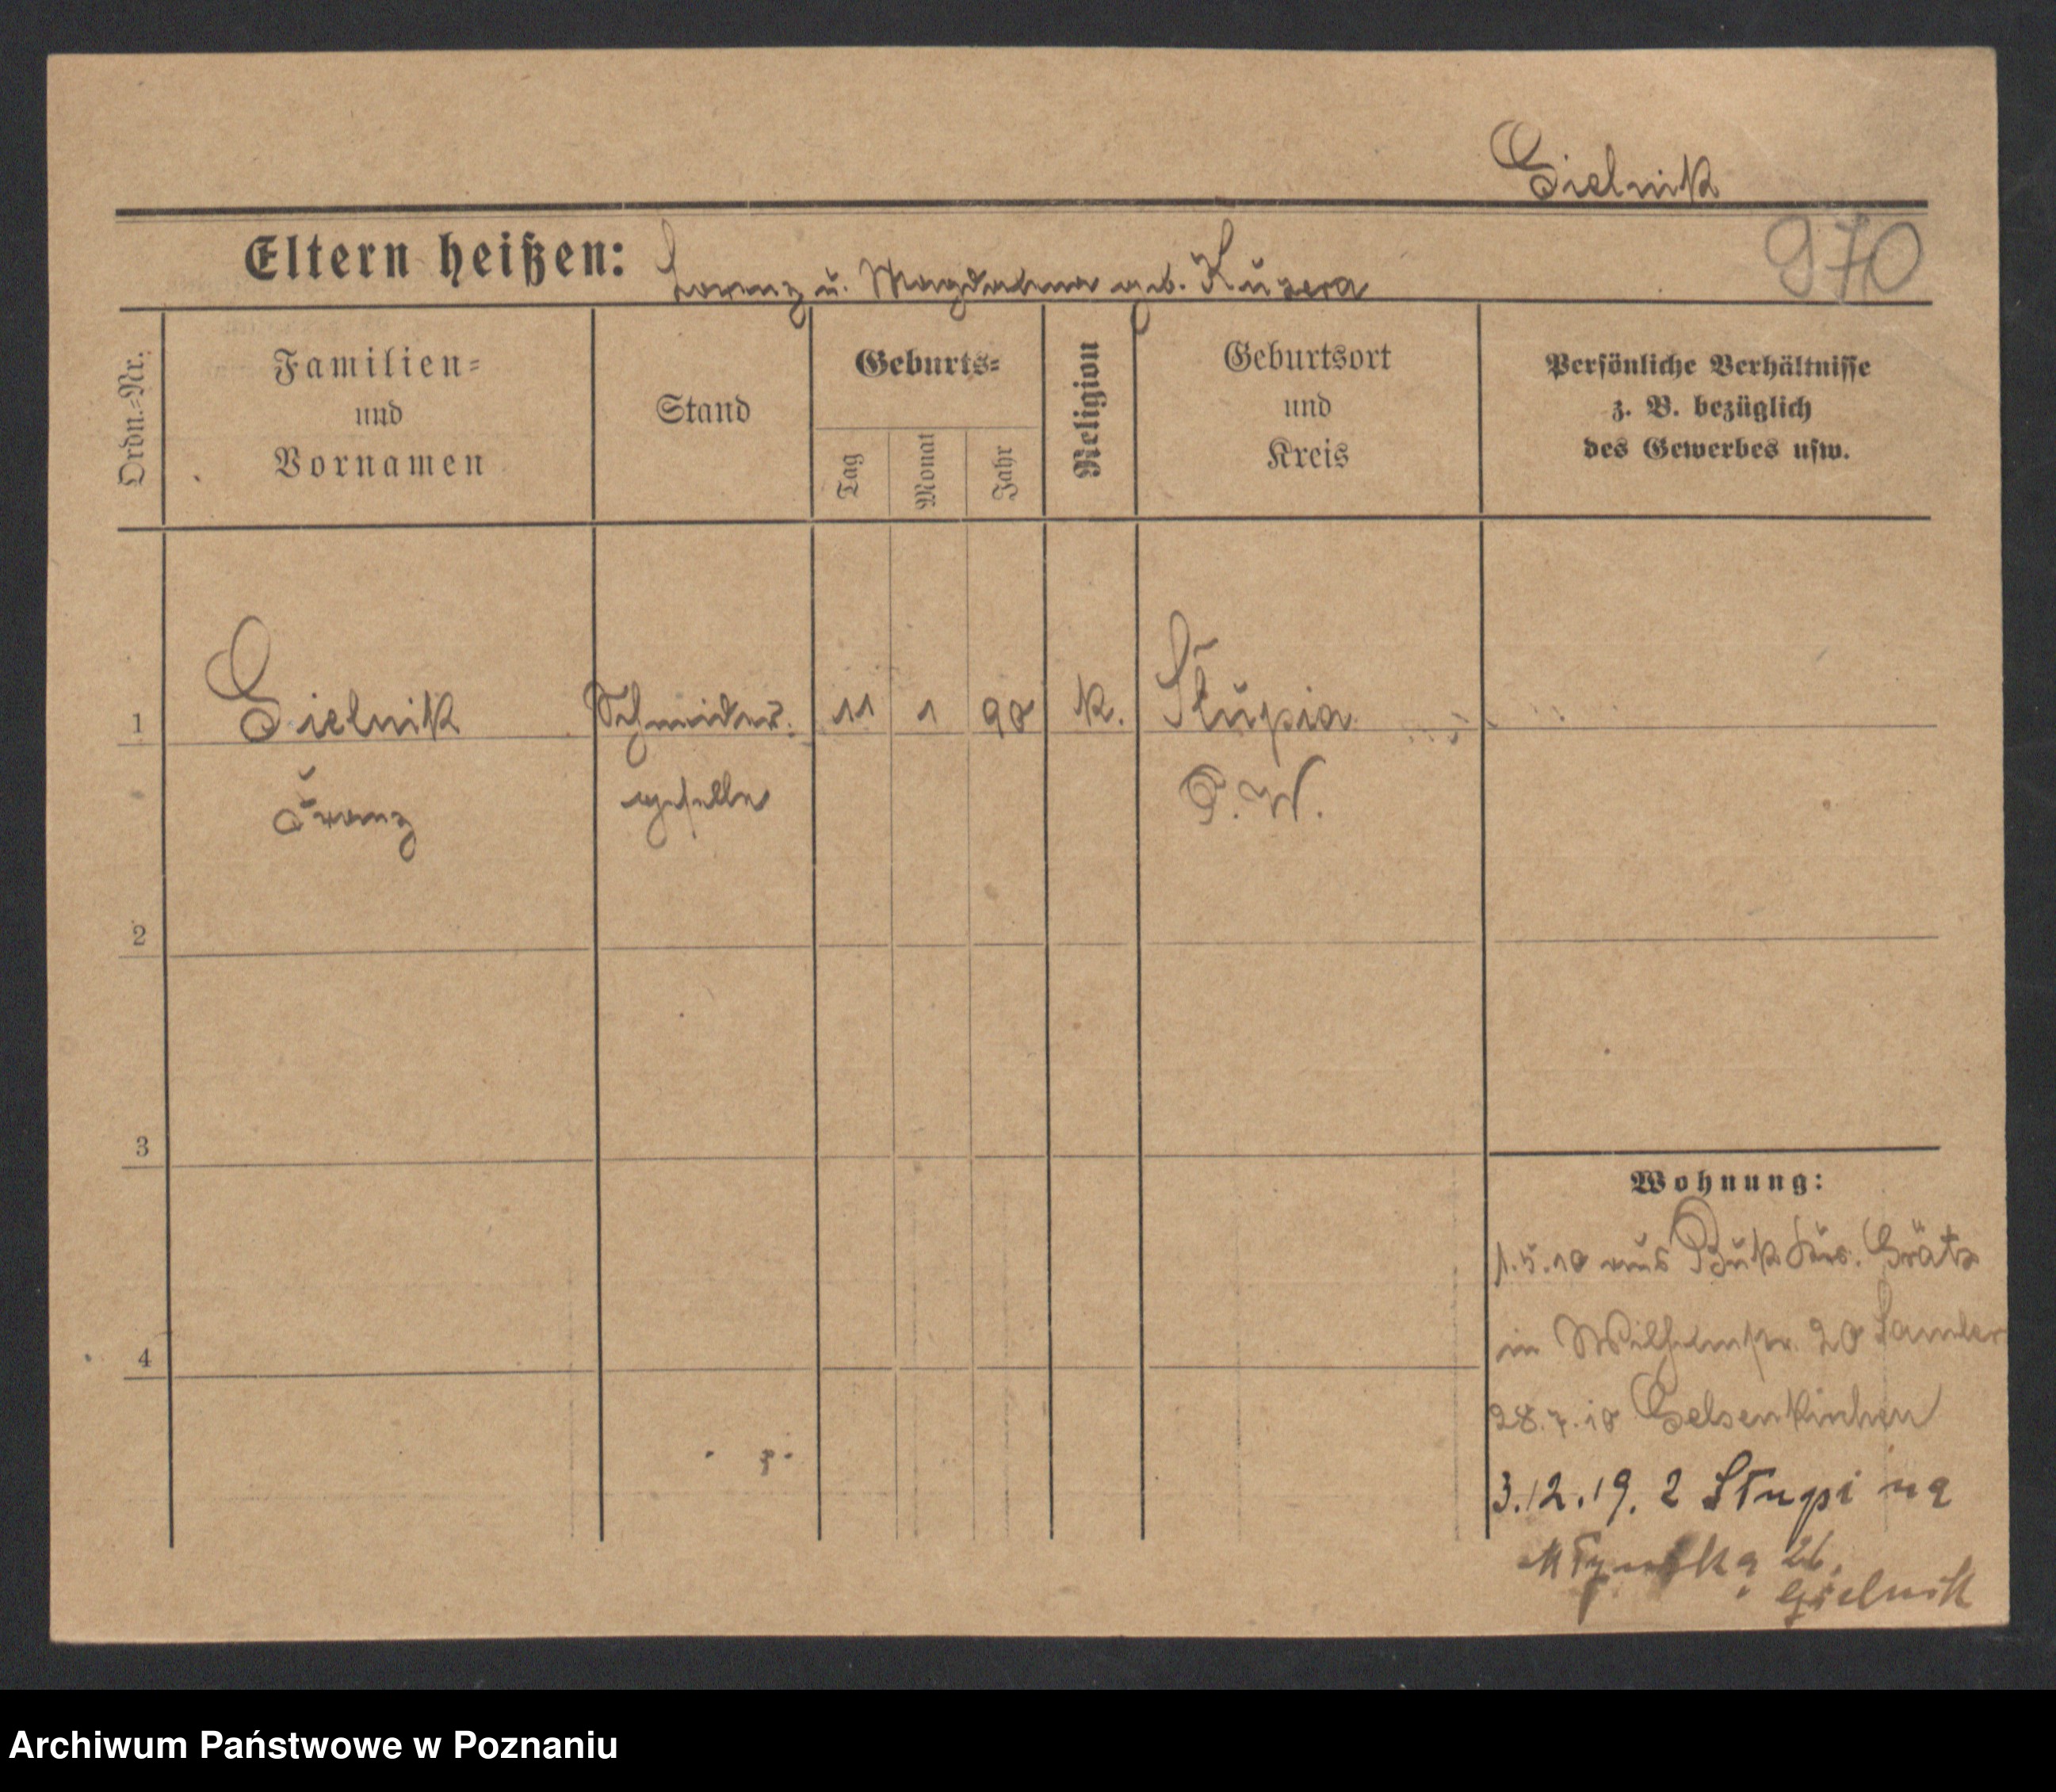 Cielnik
970
Eltern heißen: Lorenz u. Magdalena geb. Kuzera
Ordn.-Nr.
Familien-
und
Vornamen
Stand
Geburts-
Tag
Monat
Jahr
Religion
Geburtsort
und
Kreis
Persönliche Verhältnisse
z. B. bezüglich
des Gewerbes usw.
1
Cielnik
Schneider.
11
1
90
k.
Słupia
Franz
geselle
P.W.
2
3
4
Wohnung:
1.5.10 aus Buk Krs. Grätz
in Wilhelmstr. 20
28.7.10 Gelsenkirchen
3.12.19. z Słupi na
Młyńską 26.
Cielnik
Archiwum Państwowe w Poznaniu